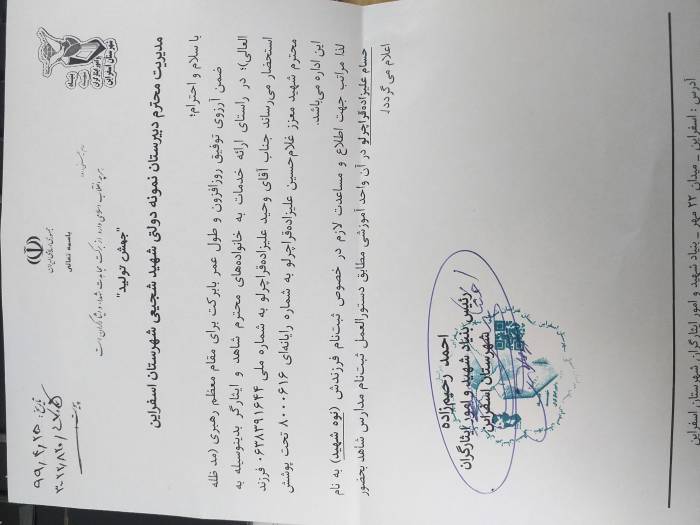 باسمه تعالی
جمهوری اسلامی ایران
تاریخ: ۹۹/۴/۲۵
پیوست:
"جهش تولید"
بنیاد شهید و امور ایثارگران
شهرستان اسفراین
مدیریت محترم دبیرستان نمونه دولتی شهید شجیعی شهرستان اسفراین
با سلام و احترام؛
ضمن آرزوی توفیق روزافزون و طول عمر بابرکت برای مقام معظم رهبری (مد ظله
العالی)؛ در راستای ارائه خدمات به خانواده‌های محترم شاهد و ایثارگر بدینوسیله به
استحضار می‌رساند جناب آقای وحید علیزاده‌قراچرلو به شماره ملی ۰۶۳۸۳۹۱۶۴۴ فرزند
محترم شهید معزز غلام‌حسین علیزاده‌قراچرلو به شماره رایانه‌ای ۸۰۰۰۶۱۶ تحت پوشش
این اداره می‌باشد.
لذا مراتب جهت اطلاع و مساعدت لازم در خصوص ثبت‌نام فرزندش (نوه شهید) به نام
حسام علیزاده‌قراچرلو در آن واحد آموزشی مطابق دستورالعمل ثبت‌نام مدارس شاهد بحضور
اعلام می گردد./
احمد رحیم‌زاده
رئیس بنیاد شهید و امور ایثارگران
شهرستان اسفراین
آدرس: اسفراین - میدان ۲۲ مهر - بنیاد شهید و امور ایثارگران شهرستان اسفراین